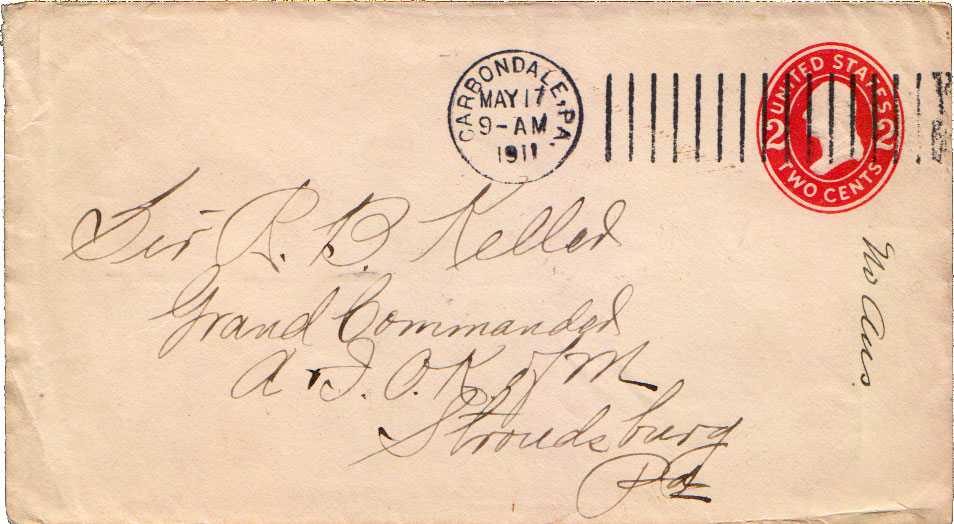 CARBONDALE, PA.
MAY 17
9-AM
1911
UNITED STATES
2 2
TWO CENTS
Sir R. B. Keller
Grand Commander
A. I. O. K. of M
Stroudsburg
Pa
No Ans.